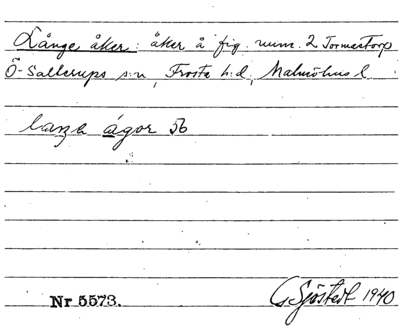 Långe åker: åker å fig. num. 2 Tormastorp
Ö-Sallerups s:n, Frosta h:d, Malmöhus l.
lang̨a ágor 56
Nr 5573.
G Sjöstedt 1940